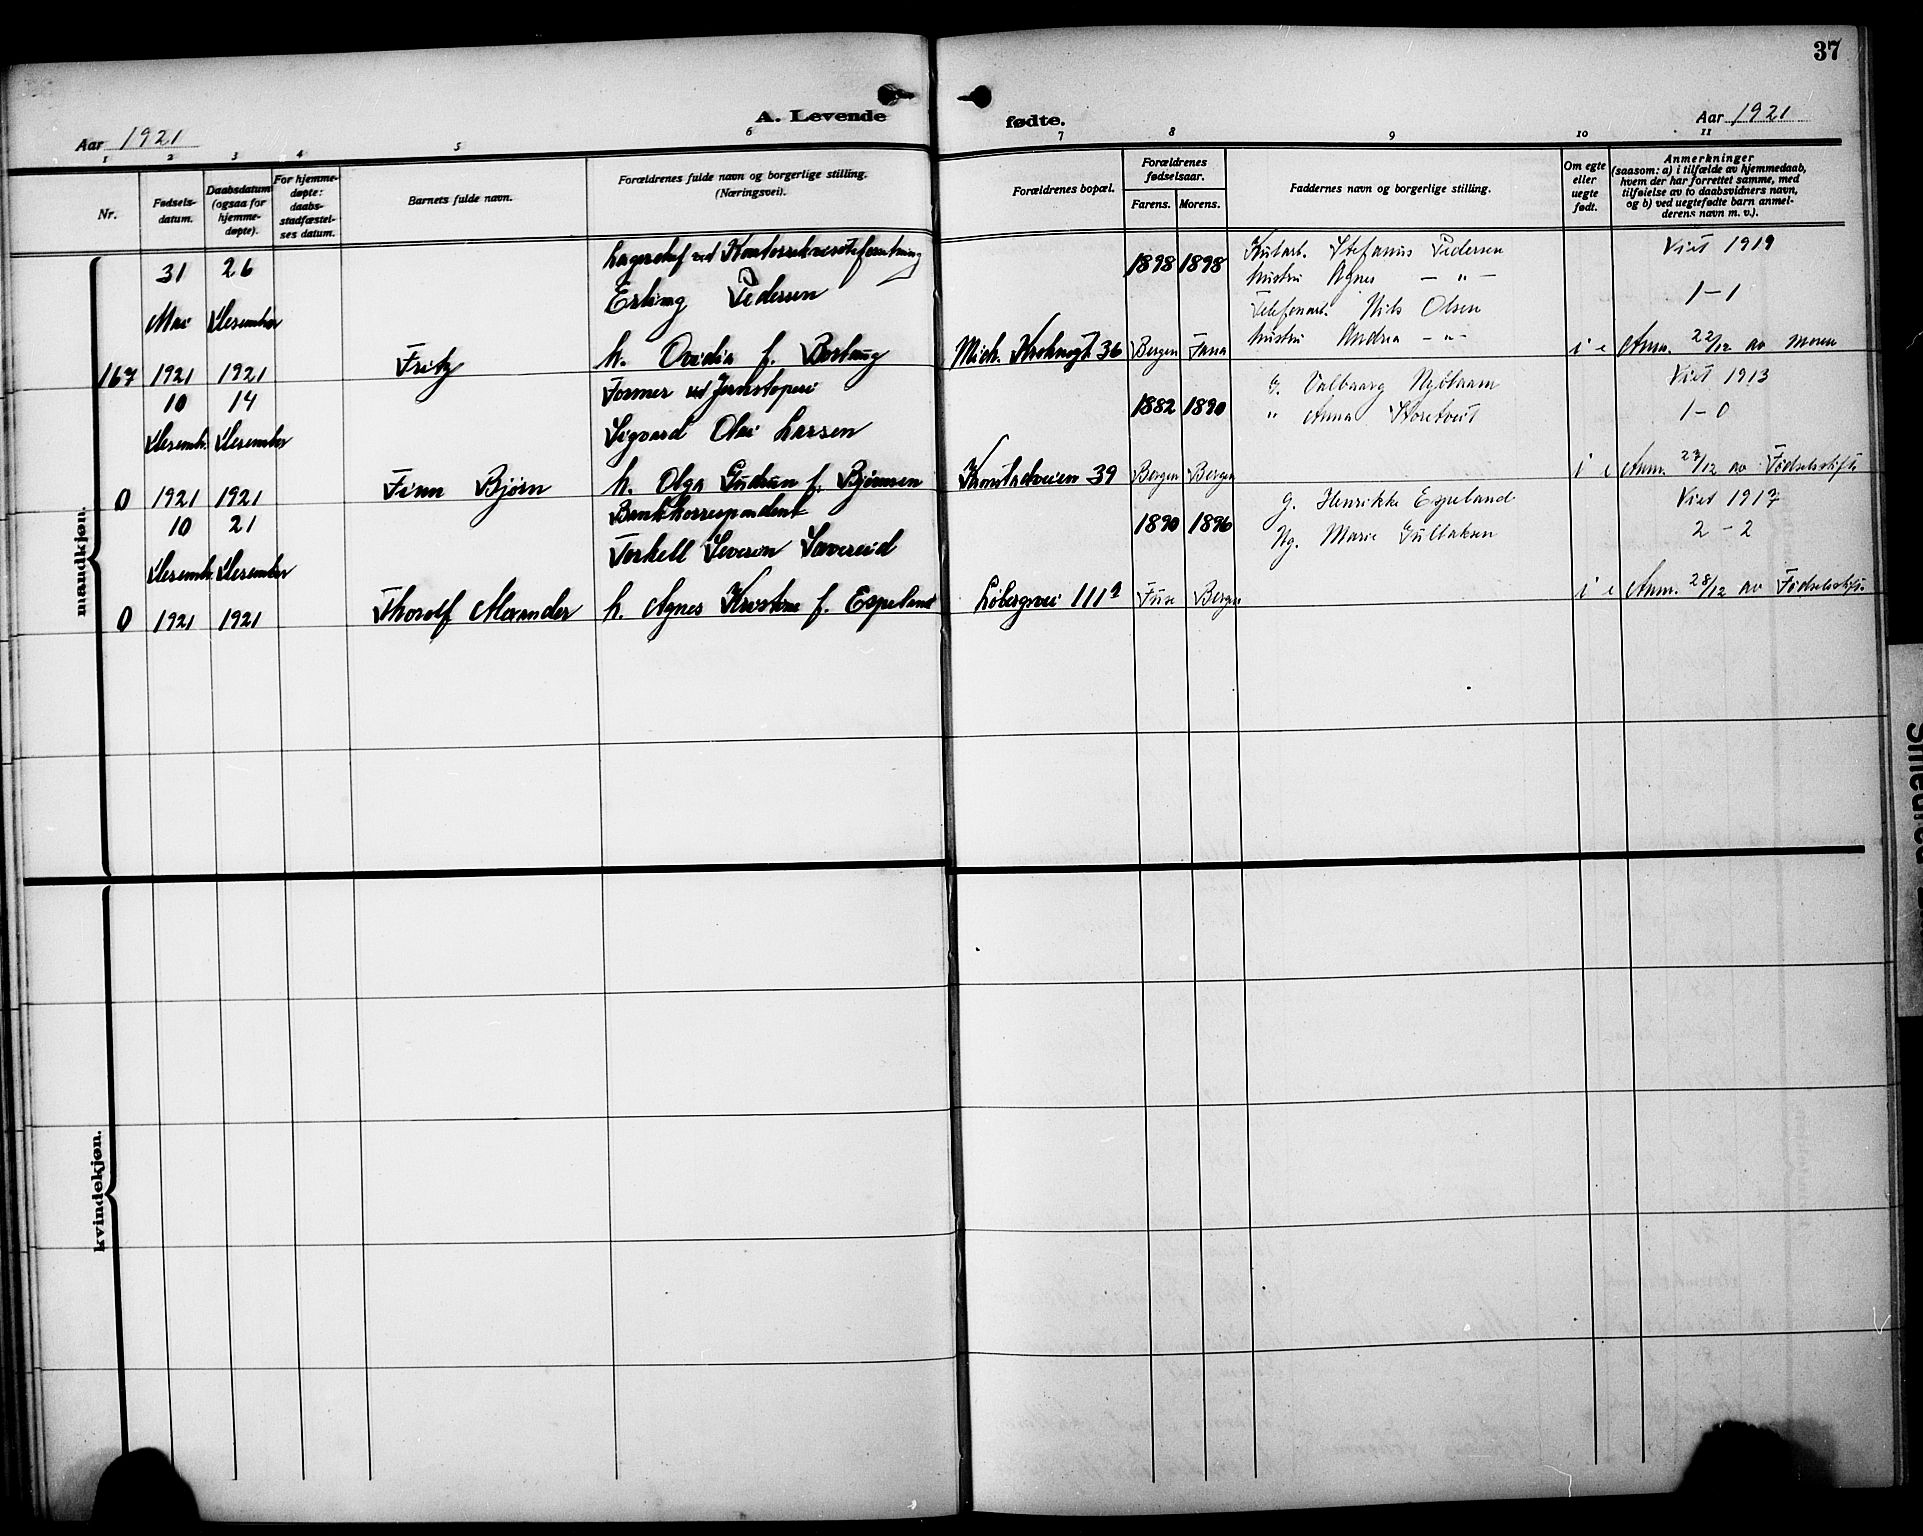 37
A. Levende fødte.
Aar 1921
Aar 1921
1 2 3 4 5 6 7 8 9 10 11
Nr.
Fødsels-
datum.
Daabsdatum
(ogsaa for
hjemme-
døpte).
For hjemme-
døpte:
daabs-
stadfæstel-
ses datum.
Barnets fulde navn.
Forældrenes fulde navn og borgerlige stilling.
(Næringsvei).
Forældrenes bopæl.
Forældrenes
fødselsaar.
Farens. Morens.
Faddernes navn og borgerlige stilling.
Om egte
eller
uegte
født.
Anmerkninger
(saasom: a) i tilfælde av hjemmedaab,
hvem der har forrettet samme, med
tilføielse av to daabsvidners navn,
og b) ved uegtefødte barn anmel-
derens navn m. v.).
mandkjøn.
31 26
Mai Desember
167 1921 1921
Fritz
Lagerchef ved
Erling Pedersen
h. Ovidia f. Bostaug
Mich. Krohnsgt. 36
1898 1898
Bergen Fana
Stefanus Pedersen
hustru Agnes — " —
Telefonarb. Nils Olsen
hustru Andrea — " —
i e
Viet 1919
1 - 1
Anm. 22/12 av Moren
10 14
Desemb. Desember
0 1921 1921
Finn Bjørn
Former ved Jernstøperi
Sigvard Olai Larsen
h. Olga Gudrun f. Bjørnsen
39
1882 1890
Bergen Bergen
g. Valborg
" Anna Storetveit
i e
Viet 1913
1 - 0
Anm. 27/12 av Fødselsstift.
10 21
Desemb. Desember
0 1921 1921
Thorolf Alexander
Bankkorrespondent
Torkell Severin Sævereid
h. Agnes Kristine f. Espeland
Løbergsvei 111
1890 1896
Fuse Bergen
g. Henrikke Espeland
Ng. Marie Gulbaksen
i e
Viet 1917
2 - 2
Anm. 28/12 av Fødselsstift.
kvindekjøn.